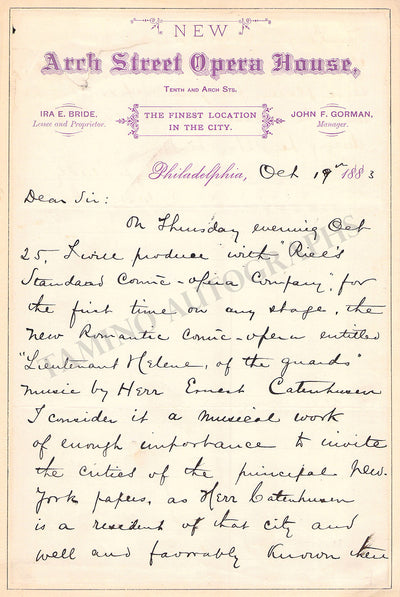 NEW
Arch Street Opera House,
TENTH AND ARCH STS.
IRA E. BRIDE,
Lessee and Proprietor.
THE FINEST LOCATION
IN THE CITY.
JOHN F. GORMAN,
Manager.
Philadelphia, Oct 19th 1883
Dear Sir:
On Thursday evening Oct
25, I will produce with "Rice's
Standard Comic-opera Company", for
the first time on any stage, the
new Romantic Comic-opera entitled
"Lieutenant Helene, of the guards"
music by Herr Ernest Catenhusen
I consider it a musical work
of enough importance to invite
the critics of the principal New-
York papers, as Herr Catenhusen
is a resident of that city and
well and favorably known there
TAMINO AUTOGRAPHS